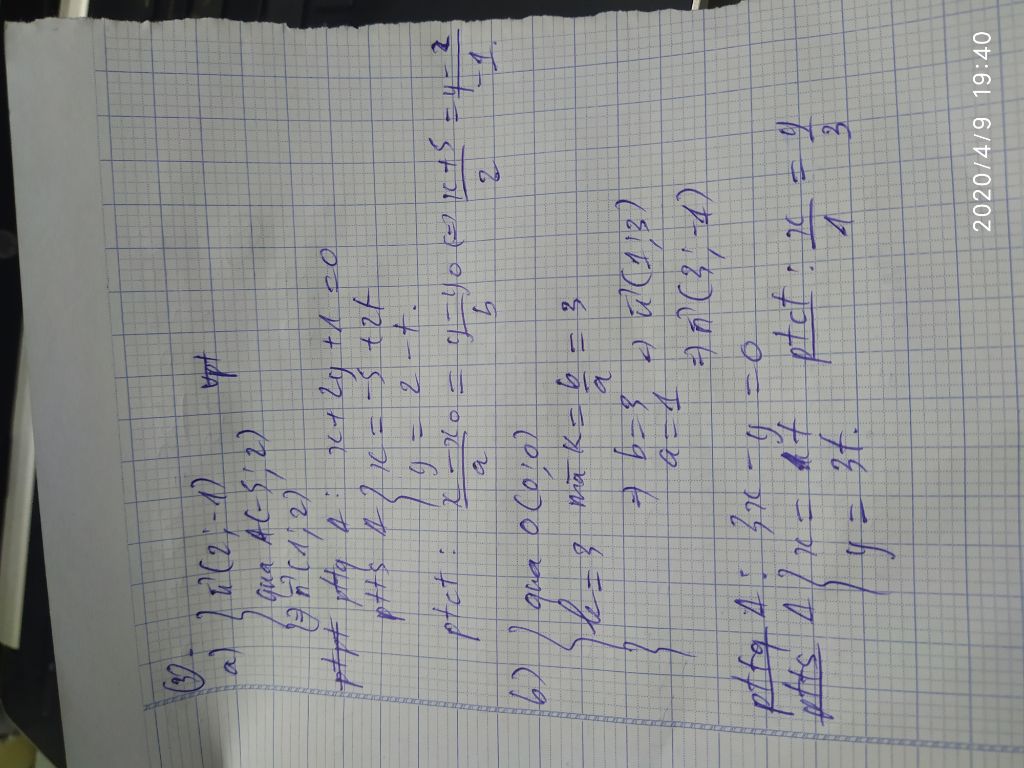 ③.
a) { u⃗(2;-1)
{ qua A(-5;2)
(⇒) n⃗(1;2)
pttq Δ: x + 2y + 1 = 0
ptts Δ { x = -5 + 2t
{ y = 2 - t.
ptct: (x - x₀)/a = (y - y₀)/b (=) (x+5)/2 = (y-2)/-1.
b) { qua O(0;0)
{ k = 3 mà k = b/a = 3
⇒ b = 3 ⇒ u⃗(1;3)
a = 1
⇒ n⃗(3;-1)
pttq Δ: 3x - y = 0
ptts Δ { x = t ptct: x/1 = y/3
{ y = 3t.
2020/4/9 19:40